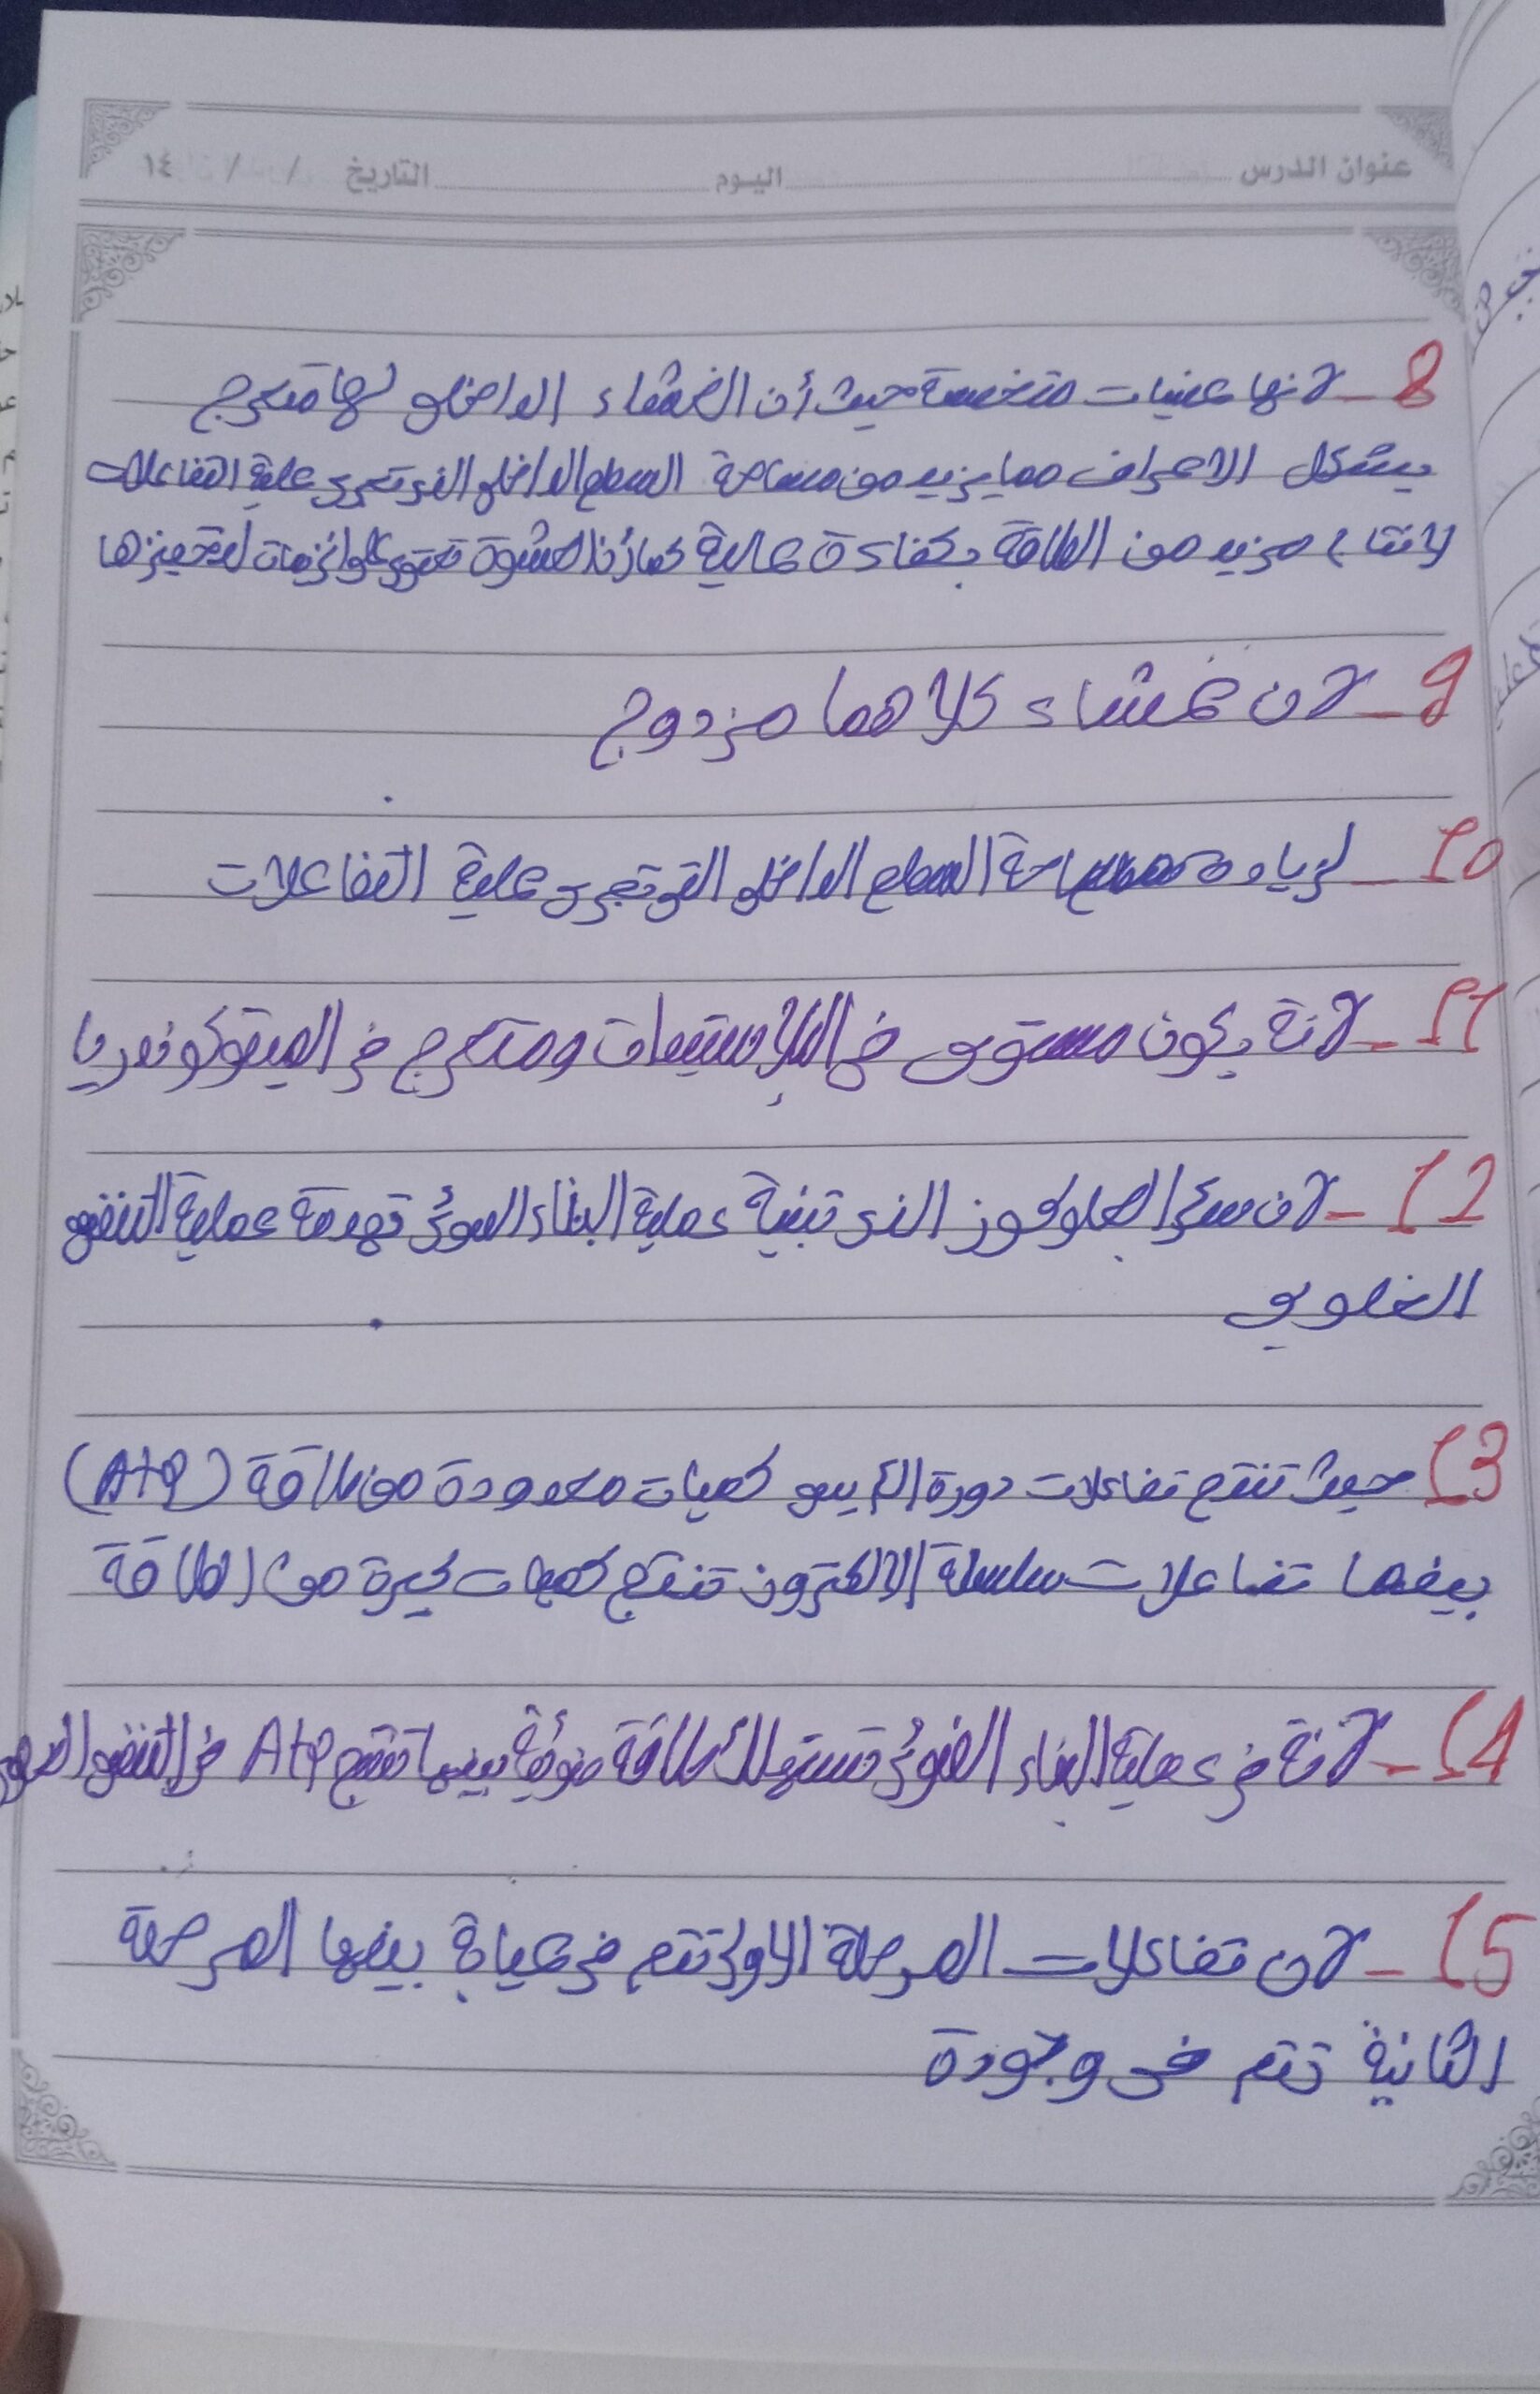 عنوان الدرس اليوم التاريخ / / ١٤
8 - لانها عضيات متخصصة حيث أن الغشاء الداخلي لها متعرج
يشكل الاعراف مما يزيد من مساحة السطح الداخلي الذي تجري علية التفاعلات
لانتاج مزيد من الطاقة بكفاءة عالية كما أن الحشوة تحتوي على انزيمات لتحفيزها
9 - لان غشاء كلا هما مزدوج
10 - لزيادة مساحة السطح الداخلي التي تجري علية التفاعلات
11 - لانة يكون مستوي في البلاستيدات ومتعرج في الميتوكوندريا
12 - لان سكر الجلوكوز الذي تبنية عملية البناء الضوئي تهدمة عملية التنفس
الخلوي
13 حيث تنتج تفاعلات دورة كربس كميات محدودة من طاقة (Atp)
بينما تفاعلات سلسلة الالكترون تنتج كميات كبيرة من الطاقة
14 - لانة في عملية البناء الضوئي تستهلك طاقة ضوئية بينما تنتج Atp في التنفس
15 - لان تفاعلات المرحلة الاولى تتم في غيابة بينما المرحلة
الثانية تتم في وجودة